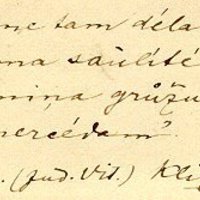 tam dēla
saulītē
miņa grūžu
percēdam".
(Jud. Vit.) Kli